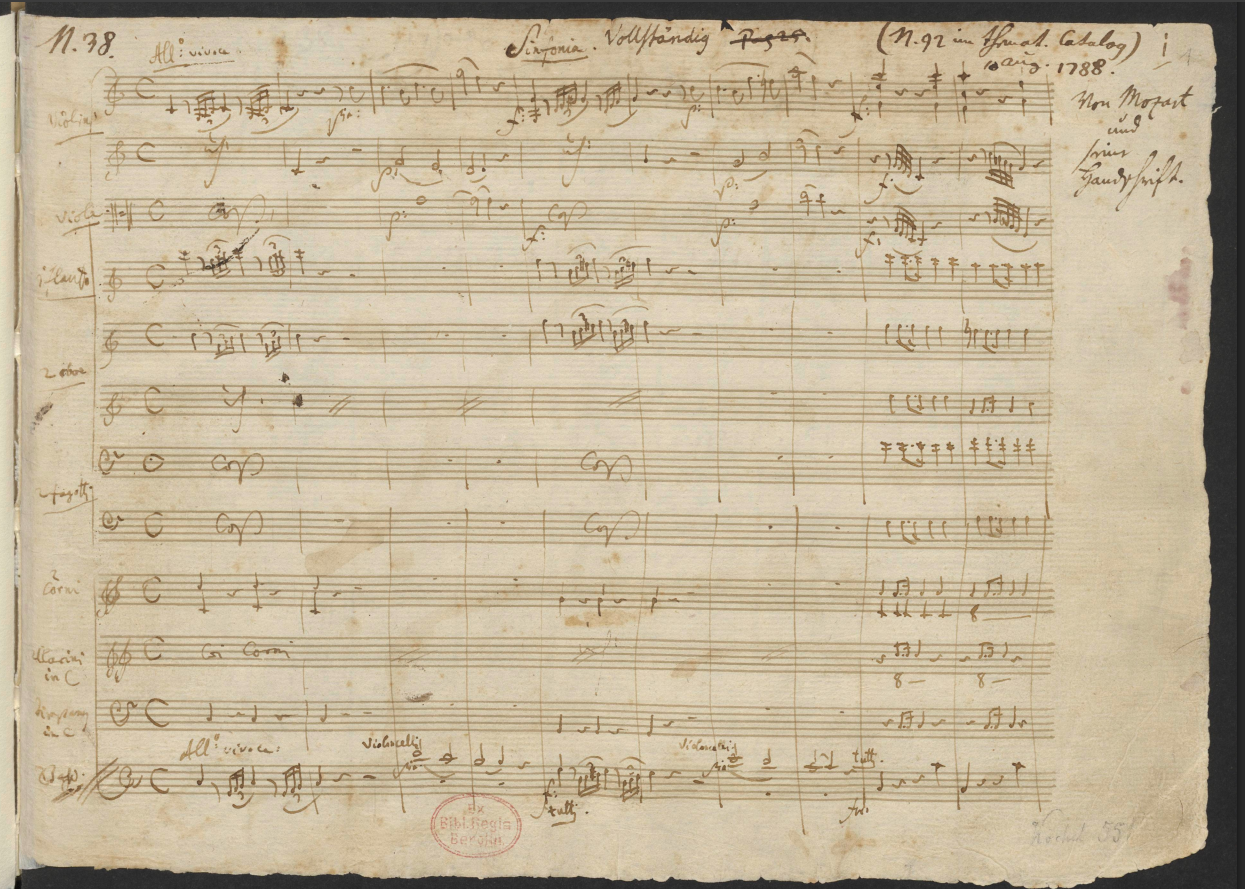 N. 38.
All:º vivace.
Sinfonia. Vollständig Pag 25.
(N. 92 im themat. Catalog)
10 aug. 1788.
1
Von Mozart
und
seine
Handschrift.
Violini
Viole
Flauto
2 oboe
2 fagotti
2
Corni
Clarini
in C
Coi Corni
Timpany
in C
All:º vivace:
Violoncelli
Violoncelli
tutti.
tutti.
Ex
Bibl. Regia
Berolin.
Köchel 551